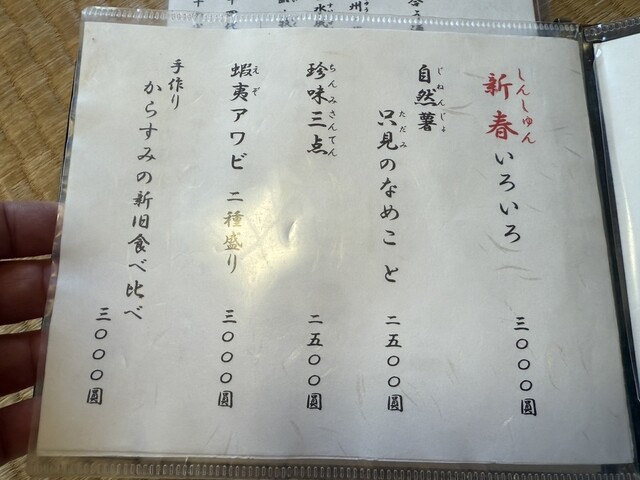 新春いろいろ 三〇〇〇圓
しんしゅん
自然薯
じねんじょ
只見のなめこ と 二五〇〇圓
ただみ
珍味三点 二五〇〇圓
ちんみさんてん
蝦夷アワビ 二種盛り 三〇〇〇圓
えぞ
手作り
からすみの新旧食べ比べ 三〇〇〇圓